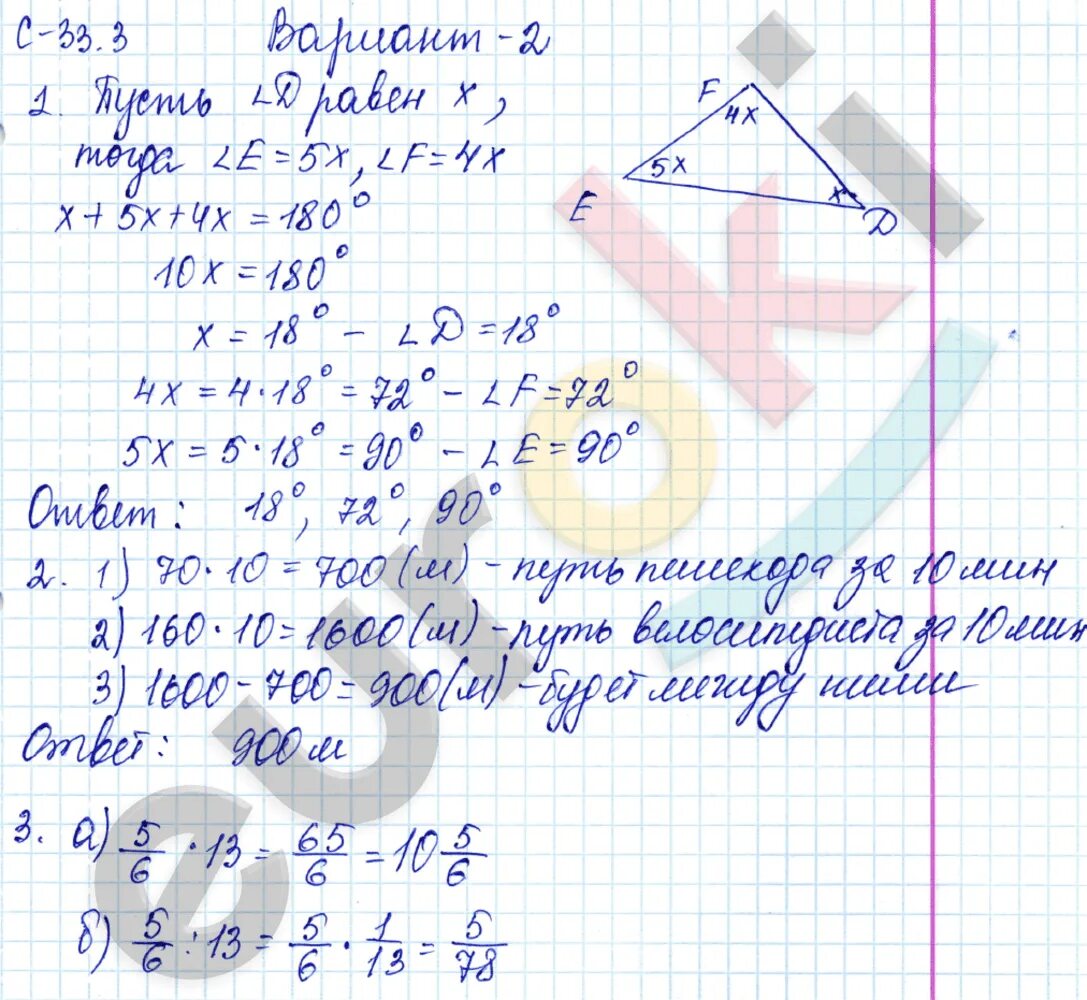 С-33.3 Вариант-2
1. Пусть ∠D равен x,
тогда ∠E = 5x, ∠F = 4x
x + 5x + 4x = 180°
10x = 180°
x = 18° - ∠D = 18°
4x = 4·18° = 72° - ∠F = 72°
5x = 5·18° = 90° - ∠E = 90°
Ответ: 18°, 72°, 90°
F
4x
5x
E
x
D
2. 1) 70·10 = 700 (м) - путь пешехода за 10 мин
2) 160·10 = 1600 (м) - путь велосипедиста за 10 мин
3) 1600 - 700 = 900 (м) - будет между ними
Ответ: 900 м
3. а) 5/6 · 13 = 65/6 = 10 5/6
б) 5/6 : 13 = 5/6 · 1/13 = 5/78
euroki